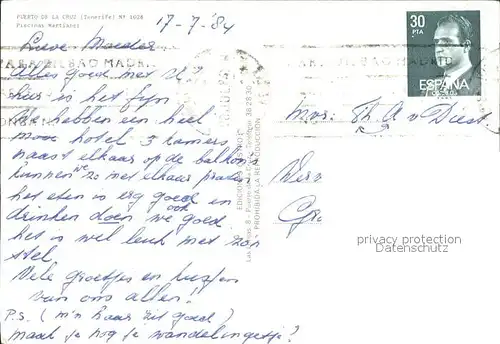 PUERTO DE LA CRUZ (Tenerife) Nº 1028
Piscinas Martiánez
17-7-'84
Lieve Moeder
Alles goed met U?
hier is het fijn
We hebben een heel
mooi hotel 3 kamers
naast elkaar op de balkons
kunnen we zo met elkaar praten
het eten is erg goed en
drinken doen we ook goed
het is wel leuk met zo'n
stel.
Vele groetjes en kusjes
van ons allen!
P.S. (m'n haar zit goed)
maak je nog je wandelingetje?
30
PTA
ESPAÑA
Mevr. Th. A. v Diest
PROHIBIDA LA REPRODUCCION
privacy protection
Datenschutz